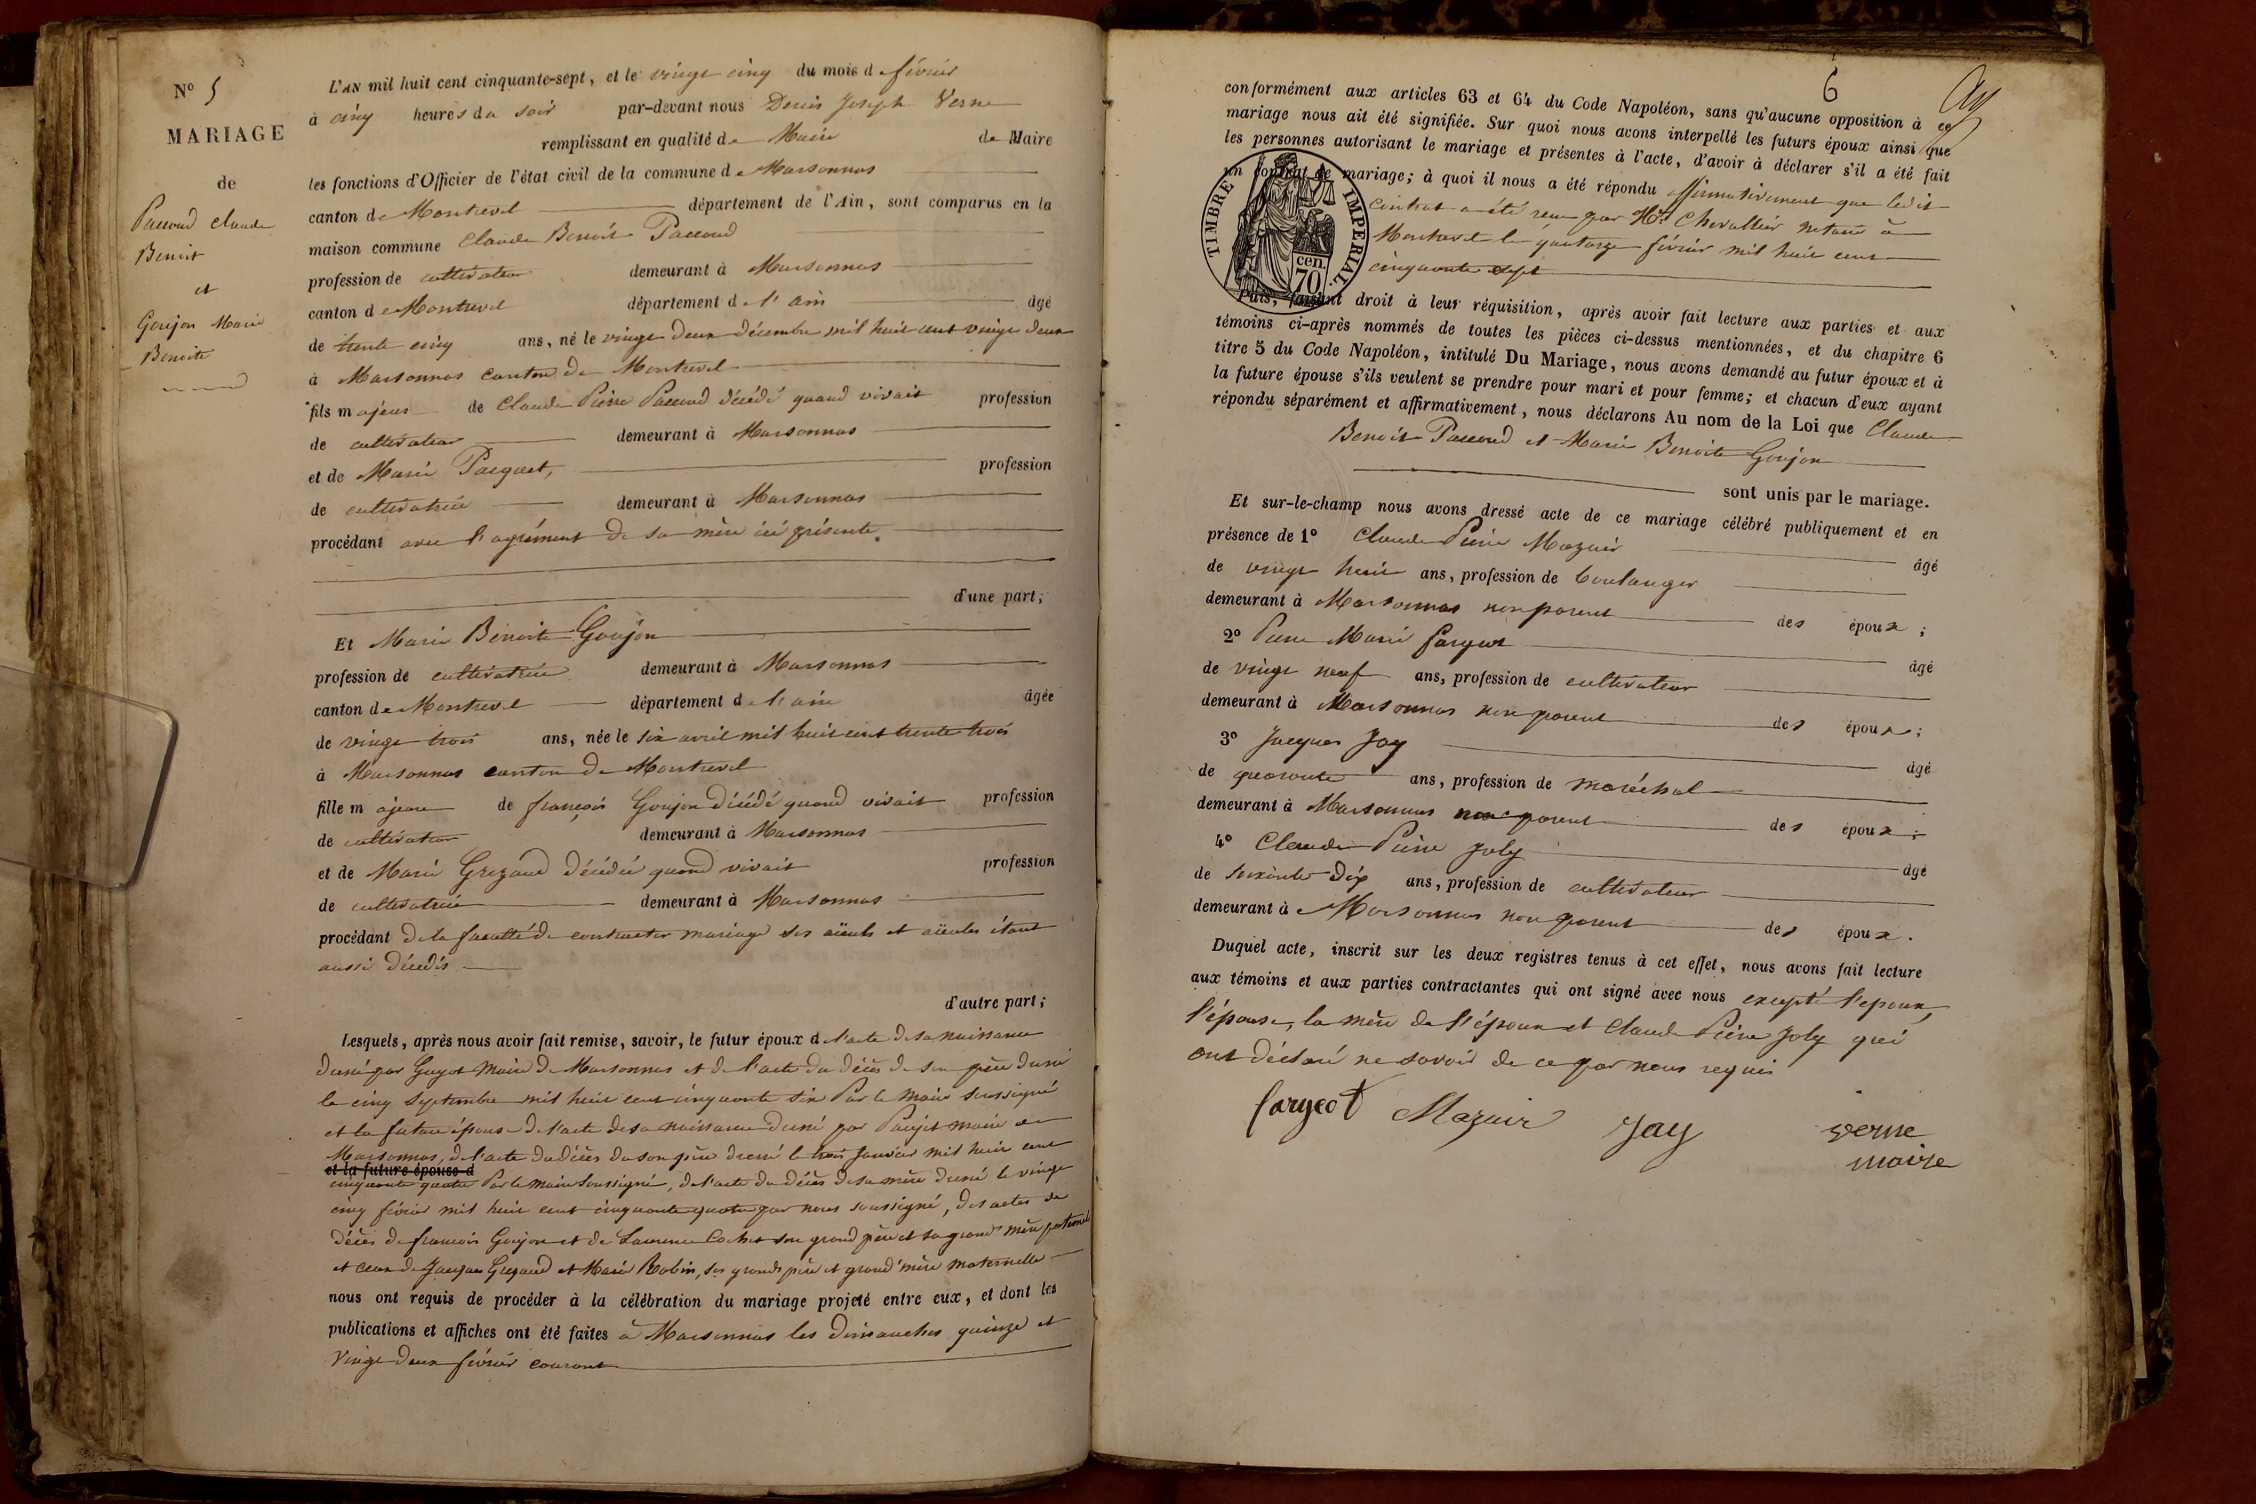 N° 5
MARIAGE
de
Paccoud Claude
Benoit
et
Goujon Marie
Benoite
L'AN mil huit cent cinquante-sept, et le vingt cinq du mois de février
à cinq heures du soir par-devant nous Denis Joseph Verne
remplissant en qualité de Maire de Maire
les fonctions d'Officier de l'état civil de la commune de Marsonnas
canton de Montrevel département de l'Ain, sont comparus en la
maison commune Claude Benoit Paccoud
profession de cultivateur demeurant à Marsonnas
canton de Montrevel département de l'ain âgé
de trente cinq ans, né le vingt deux décembre mil huit cent vingt deux
à Marsonnas canton de Montrevel
fils majeur de Claude Pierre Paccoud décédé quand vivait profession
de cultivateur demeurant à Marsonnas
et de Marie Pacquet, profession
de cultivatrice demeurant à Marsonnas
procédant avec l'agrément de sa mère ici présente.
d'une part;
Et Marie Benoite Goujon
profession de cultivatrice demeurant à Marsonnas
canton de Montrevel département de l'ain âgée
de vingt trois ans, née le six avril mil huit cent trente trois
à Marsonnas canton de Montrevel
fille majeure de françois Goujon décédé quand vivait profession
de cultivateur demeurant à Marsonnas
et de Marie Grezaud décédée quand vivait profession
de cultivatrice demeurant à Marsonnas
procédant de la faculté de contracter mariage ses aïeuls et aïeules étant
aussi décédés
d'autre part;
Lesquels, après nous avoir fait remise, savoir, le futur époux de l'acte de sa naissance
dressé par Guyot maire de Marsonnas et de l'acte du décès de son père dressé
le cinq Septembre mil huit cent cinquante six Par le maire soussigné
et la future épouse de l'acte de sa naissance dressé par maire de
Marsonnas, de l'acte du décès de son père dressé le trois Janvier mil huit cent
et la future épouse d
cinquante quatre Par le maire soussigné, de l'acte du décès de sa mère dressé le vingt
cinq février mil huit cent cinquante quatre par nous soussigné, des actes de
décès de françois Goujon et de Laurence Cochet son grand père et sa grand mère paternels
et ceux de Jacques Grezaud et Marie Robin, ses grands père et grand'mère maternelle
nous ont requis de procéder à la célébration du mariage projeté entre eux, et dont les
publications et affiches ont été faites à Marsonnas les dimanches quinze et
Vingt deux février courant
6
conformément aux articles 63 et 64 du Code Napoléon, sans qu'aucune opposition à ce
mariage nous ait été signifiée. Sur quoi nous avons interpellé les futurs époux ainsi que
les personnes autorisant le mariage et présentes à l'acte, d'avoir à déclarer s'il a été fait
un contrat de mariage; à quoi il nous a été répondu affirmativement que ledit
contrat a été reçu par Me Chevallier notaire à
Montrevel le quatorze février mil huit cent
cinquante sept
TIMBRE IMPERIAL.
cen.
70
Puis, faisant droit à leur réquisition, après avoir fait lecture aux parties et aux
témoins ci-après nommés de toutes les pièces ci-dessus mentionnées, et du chapitre 6
titre 5 du Code Napoléon, intitulé Du Mariage, nous avons demandé au futur époux et à
la future épouse s'ils veulent se prendre pour mari et pour femme; et chacun d'eux ayant
répondu séparément et affirmativement, nous déclarons Au nom de la Loi que Claude
Benoit Paccoud et Marie Benoite Goujon
sont unis par le mariage.
Et sur-le-champ nous avons dressé acte de ce mariage célébré publiquement et en
présence de 1° Claude Pierre Mazuir âgé
de vingt huit ans, profession de boulanger
demeurant à Marsonnas non parent des époux ;
2° Pierre Marie fargeot âgé
de vingt neuf ans, profession de cultivateur
demeurant à Marsonnas non parent des époux ;
3° Jacques Jay âgé
de quarante ans, profession de maréchal
demeurant à Marsonnas non parent des époux ;
4° Claude Pierre Joly âgé
de soixante dix ans, profession de cultivateur
demeurant à Marsonnas non parent des époux.
Duquel acte, inscrit sur les deux registres tenus à cet effet, nous avons fait lecture
aux témoins et aux parties contractantes qui ont signé avec nous excepté l'époux,
l'épouse, la mère de l'époux et Claude Pierre Joly qui
ont déclaré ne savoir de ce par nous requis
fargeot Mazuir Jay Verne
maire